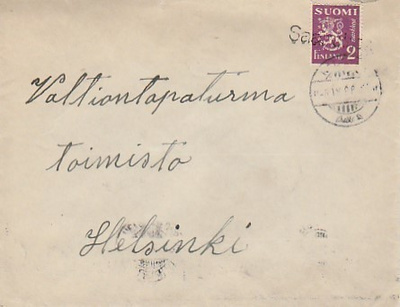 SUOMI
2
FINLAND
Valtiontapaturma
toimisto
Helsinki